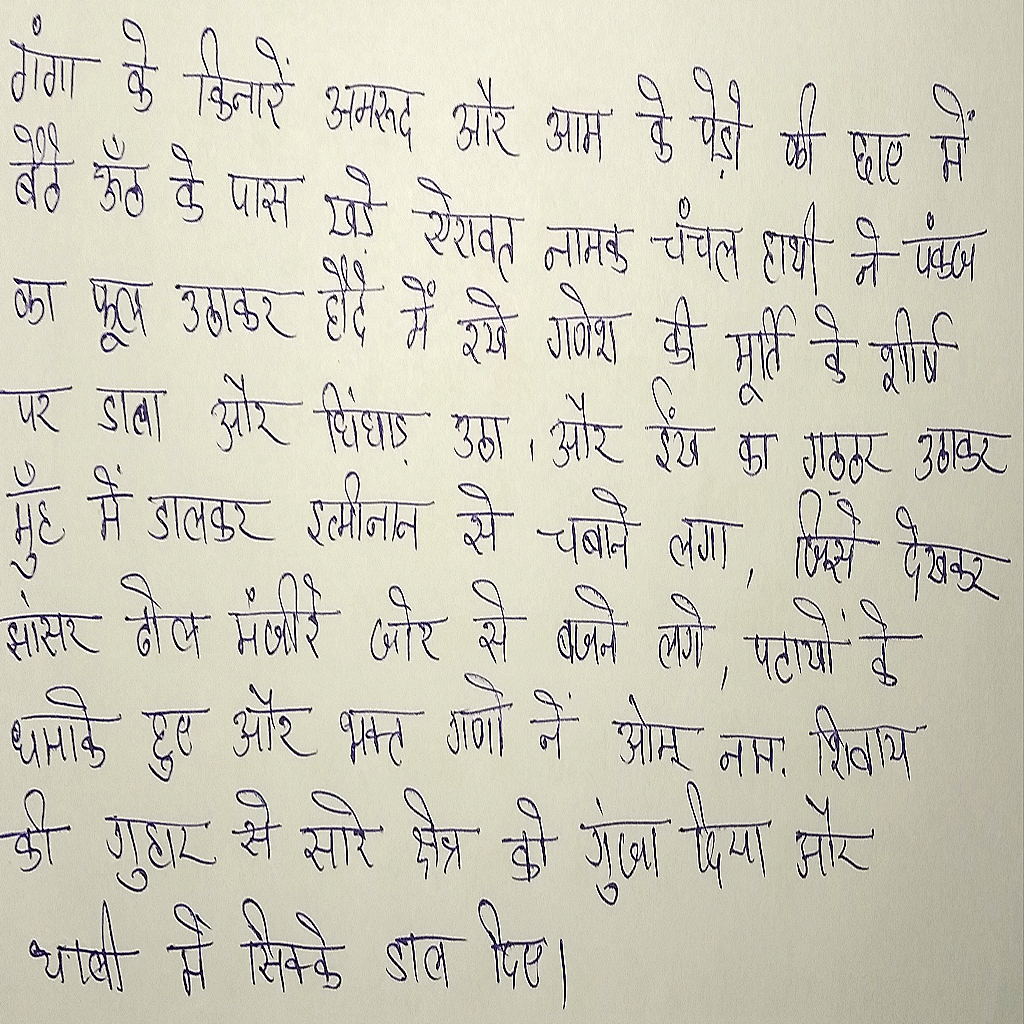 गंगा के किनारें अमरूद और आम के पेड़ों की छाए में
बैठे ऊँठ के पास खड़े ऐरावत नामक चंचल हाथी ने पंकज
का फूल उठाकर हौदे में रखे गणेश की मूर्ति के शीर्ष
पर डाला और चिंघाड़ उठा, और ईख का गठ्ठर उठाकर
मुँह में डालकर इत्मीनान से चबाने लगा, जिसे देखकर
झांसर ढोल मंजीरे जोर से बजने लगे, पटाखों के
धमाके हुए और भक्त गणों नें ओम नमः शिवाय
की गुहार से सारे क्षेत्र को गुंजा दिया और
थाली में सिक्के डाल दिए।